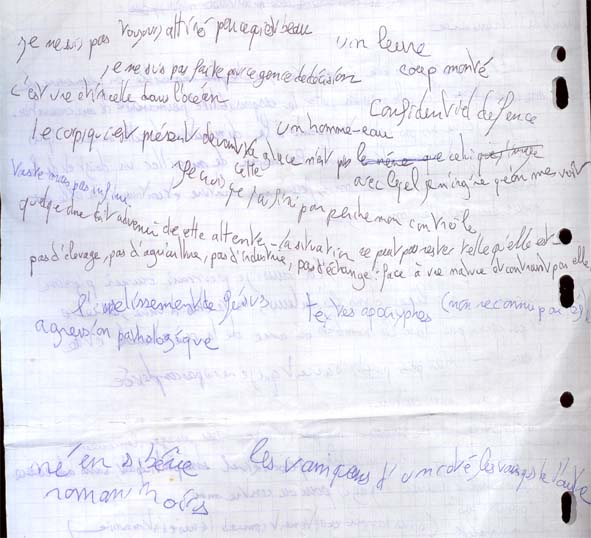 je ne suis pas toujours attiré par ce qui est beau
un leurre
je ne suis pas faite pour ce genre de décision
coup monté
c'est une étincelle dans l'océan
Confidentiel défence
un homme-eau
le corps qui est présent devant cette glace n'est pas le même que celui
avec lequel je m'imagine qu'on me voit
Je crois que j'ai fini par perdre mon contrôle
Vaste mais pas infini
quelque chose doit advenir de cette attente - la situation ne peut pas rester telle qu'elle est
pas d'élevage, pas d'agriculture, pas d'industrie, pas d'échange : face à vie
l'ensevelissement de
textes apocryphes (non reconnu par
agression pathologique
né en sibérie
les vainqueurs d'un côté, les vaincus de l'autre
roman noirs